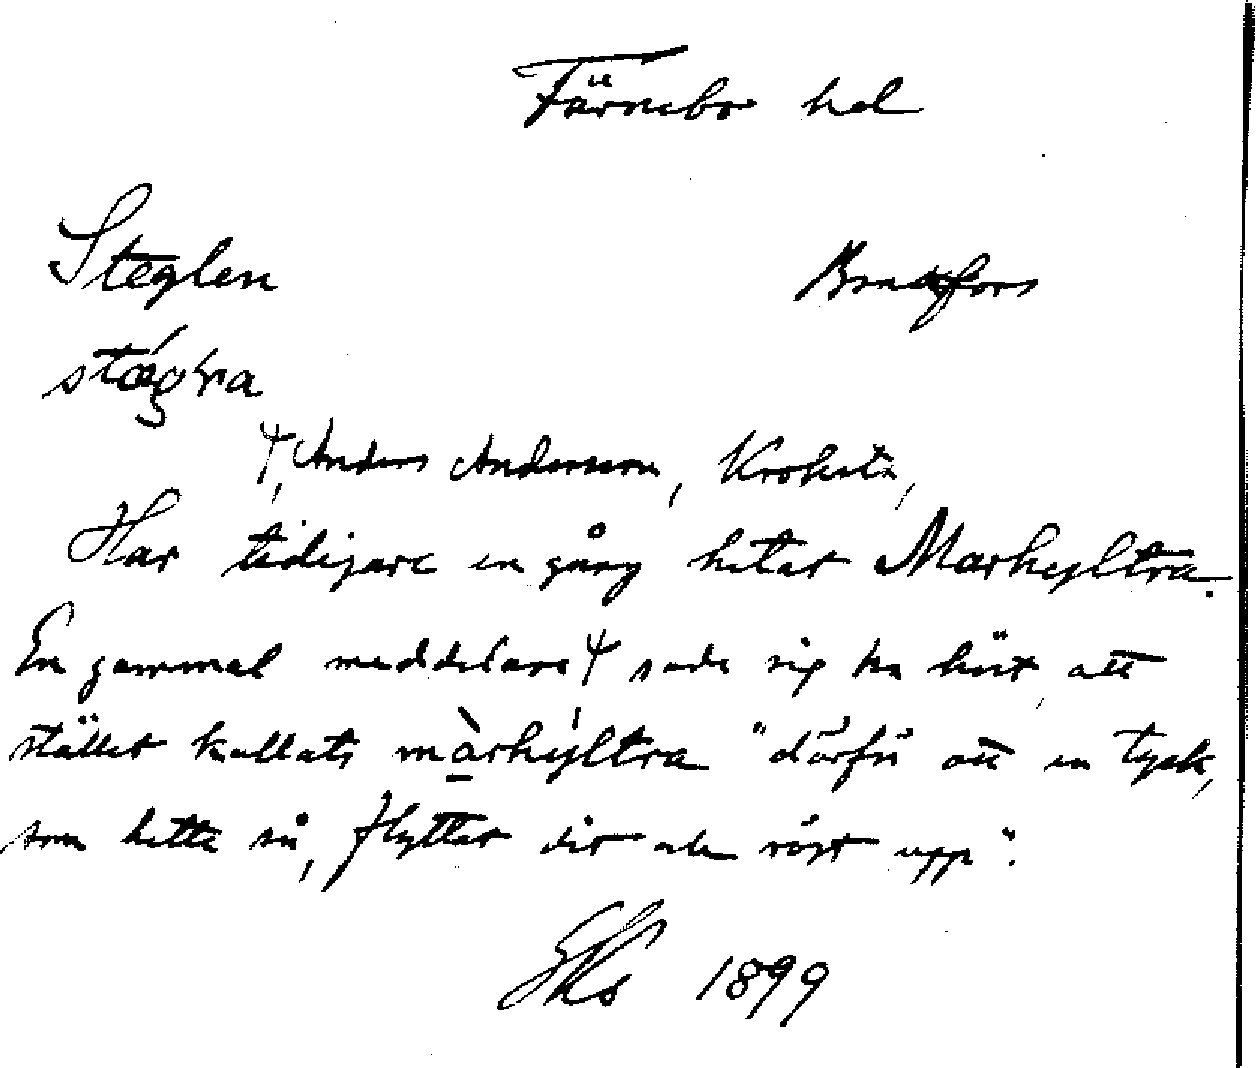 Färnebo hd
Steglen Brattfors
stægra
Anders Andersson, Krokstn,
Har tidigare en gång hetat Markyltra.
En gammal meddelare sade sig ha hört att
stället kallats màrkyltra "därför att en tysk,
som hette så, flyttat dit och röjt upp".
1899